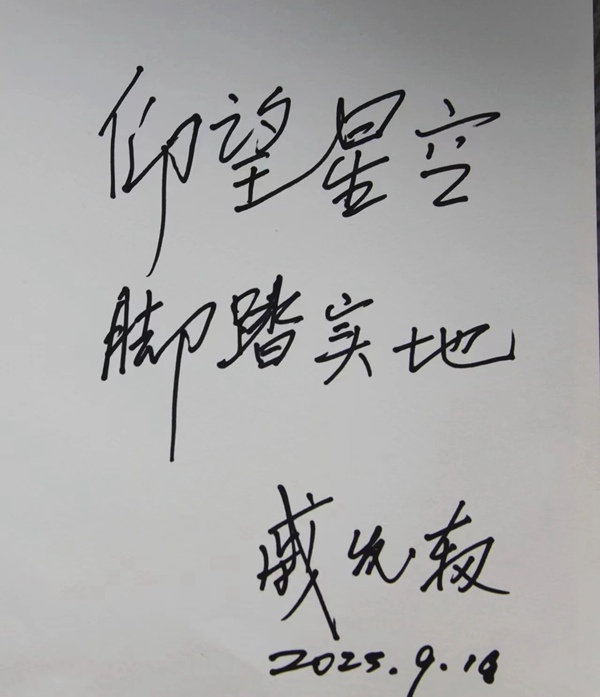 仰望星空
脚踏实地
戚发轫
2025.9.18